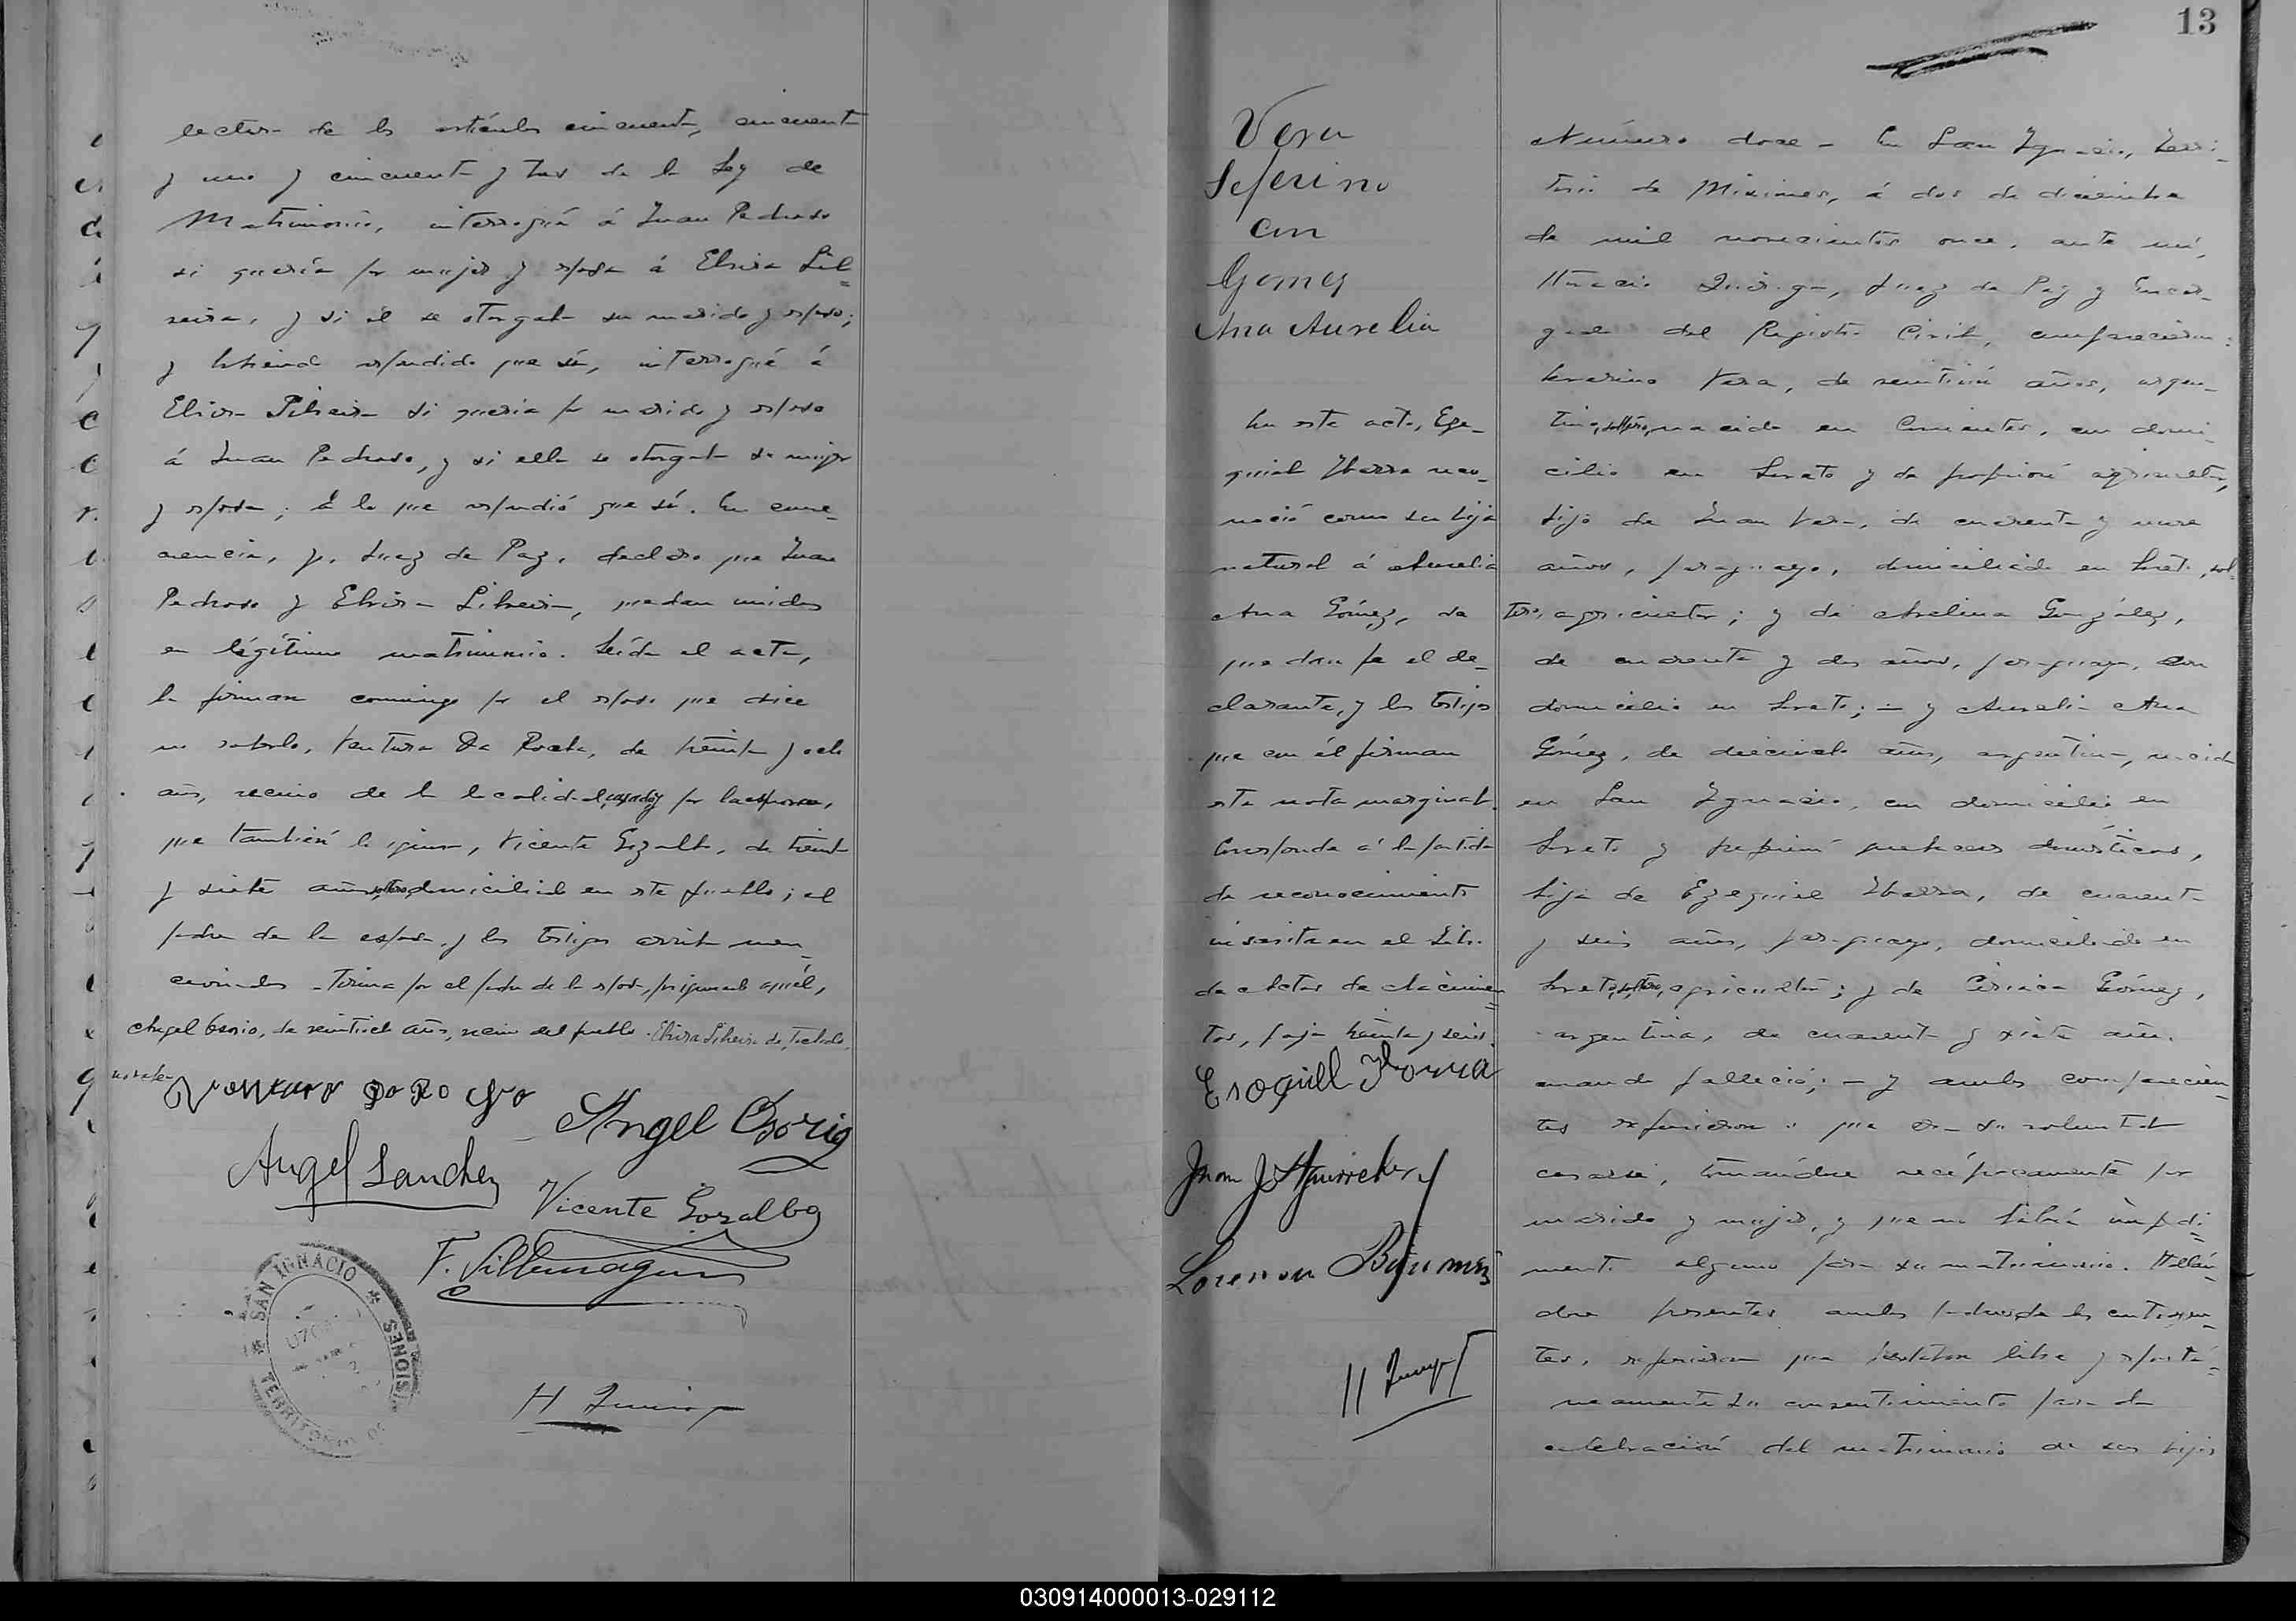 lectura de los artículos cincuenta, cincuenta
y uno y cincuenta y tres de la Ley de
Matrimonio, interrogué á Juan Pedroso
si quería por mujer y esposa á Elvira Sil=
veira, y si él se otorgaba su marido y esposo;
y habiendo respondido que sí, interrogué á
Elvira Silveira si quería por marido y esposo
á Juan Pedroso, y si ella se otorgaba su mujer
y esposa; á lo que respondió que sí. En
Juez de Paz, declaro que Juan
Pedroso y Elvira Silveira, quedan unidos
en legítimo matrimonio. Leída el acta,
la firman conmigo por el esposo que dice
no saberlo, Ventura Da Rocha, de treinta y ocho
años, vecino de la localidad, casado, y por la esposa,
que también lo ignora, Vicente Gozalbo, de treinta
y siete años, soltero, domiciliado en este pueblo; el
padre de la esposa, y los testigos arriba men-
cionados. Firma por el padre de la esposa, por ignorarlo aquél,
Angel Osorio, de años, vecino del pueblo.
Ventura Da Rocha
Angel Osorio
Angel Sanchez
Vicente Gozalbo
F. Villemagne
H Quiroga
SAN IGNACIO
TERRITORIO DE MISIONES
13
Vera
Seferino
con
Gomez
Ana Aurelia
En este acto, Eze-
quiel Ibarra reco-
noció como su hija
natural á Aurelia
Ana Gómez, de
que dan fe el de-
clarante, y los testigos
que con él firman
esta nota marginal.
Corresponde á la partida
de reconocimiento
inscrita en el Libro
de Actas de Nacimien=
tos, foja treinta y seis.
Esequiel Ibarra
Juan J
Lorenzo
H Quiroga
Número doce - En San Ignacio, Terri-
torio de Misiones, á dos de diciembre
de mil novecientos once, ante mí,
Horacio Quiroga, Juez de Paz y Encar-
gado del Registro Civil, comparecieron:
Severino Vera, de años, argen-
tino, soltero, nacido en Corrientes, con domi-
cilio en Loreto y de profesión agricultor,
hijo de Juan Vera, de cuarenta y nueve
años, paraguayo, domiciliado en Loreto, sol-
tero, agricultor; y de Avelina González,
de cuarenta y dos años, paraguaya, con
domicilio en Loreto; - y Aurelia Ana
Gómez, de años, argentina, nacida
en San Ignacio, con domicilio en
Loreto y profesión quehaceres domésticos,
hija de Ezequiel Ibarra, de cuarenta
y seis años, paraguayo, domiciliado en
Loreto, soltero, agricultor; y de Ciriaca Gómez,
argentina, de cuarenta y siete años
cuando falleció; - y ambos comparecien-
tes refirieron: que era su voluntad
casarse, tomándose recíprocamente por
marido y mujer, y que no había impedi=
mento alguno para su matrimonio. Hallán-
dose presentes ambos padres de los contrayen-
tes, refirieron que prestaban libre y espontá-
neamente su consentimiento para la
celebración del matrimonio de sus hijos
030914000013-029112